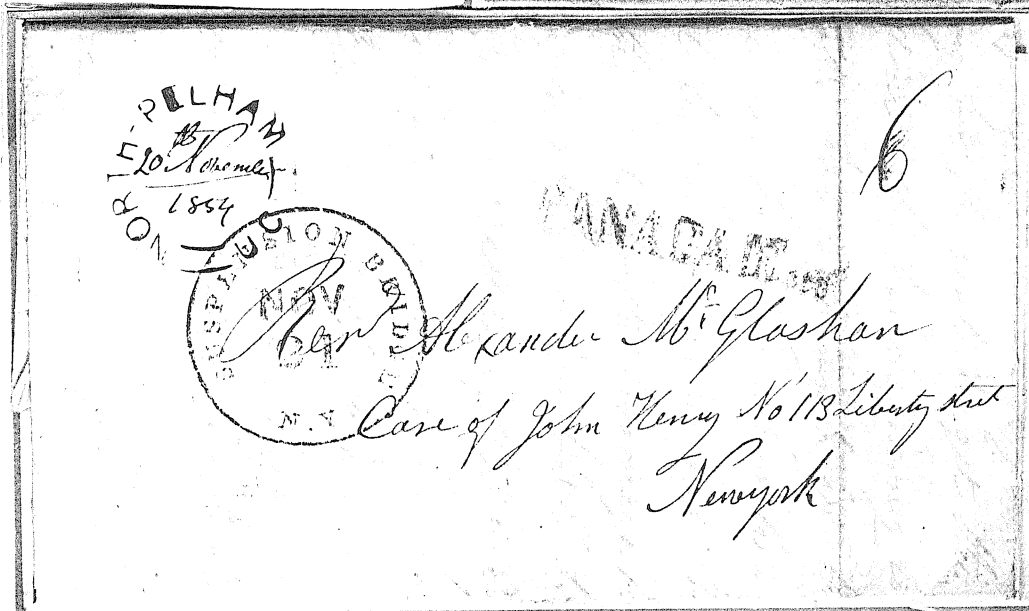 NORTH-PELHAM
20th November
1854
U C
6
CANADA
SUSPENSION BRIDGE
NOV
21
N.Y
Revr Alexander Mc Glashan
Care of John Henry No 113 Liberty street
Newyork